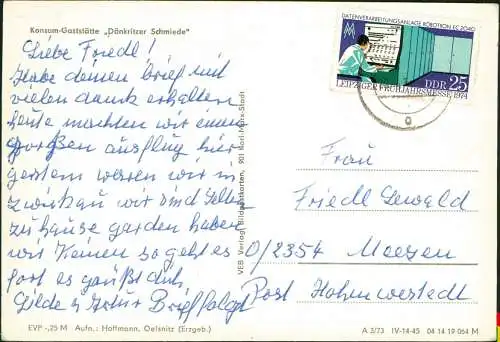 Konsum-Gaststätte „Dänkritzer Schmiede"
Liebe Friedl!
Habe deinen brief mit
vielen dank erhalten
heute machten wir einen
großen ausflug hier
gestern waren wir in
zwickau wir sind selten
zu hause garden haben
wir keinen so geht es
fort es grüßt dich
Hilde u Artur Brief folgt
EVP -,25 M Aufn.: Hoffmann, Oelsnitz (Erzgeb.)
VEB Verlag Bildpostkarten, 901 Karl-Marx-Stadt
DATENVERARBEITUNGSANLAGE ROBOTRON EC 2040
MM
DDR 25
LEIPZIGER FRÜHJAHRSMESSE 1974
Frau
Friedl Lewald
D/2354 Meezen
Post Hohenwestedt
A 3/73 IV-14-45 04 14 19 054 M